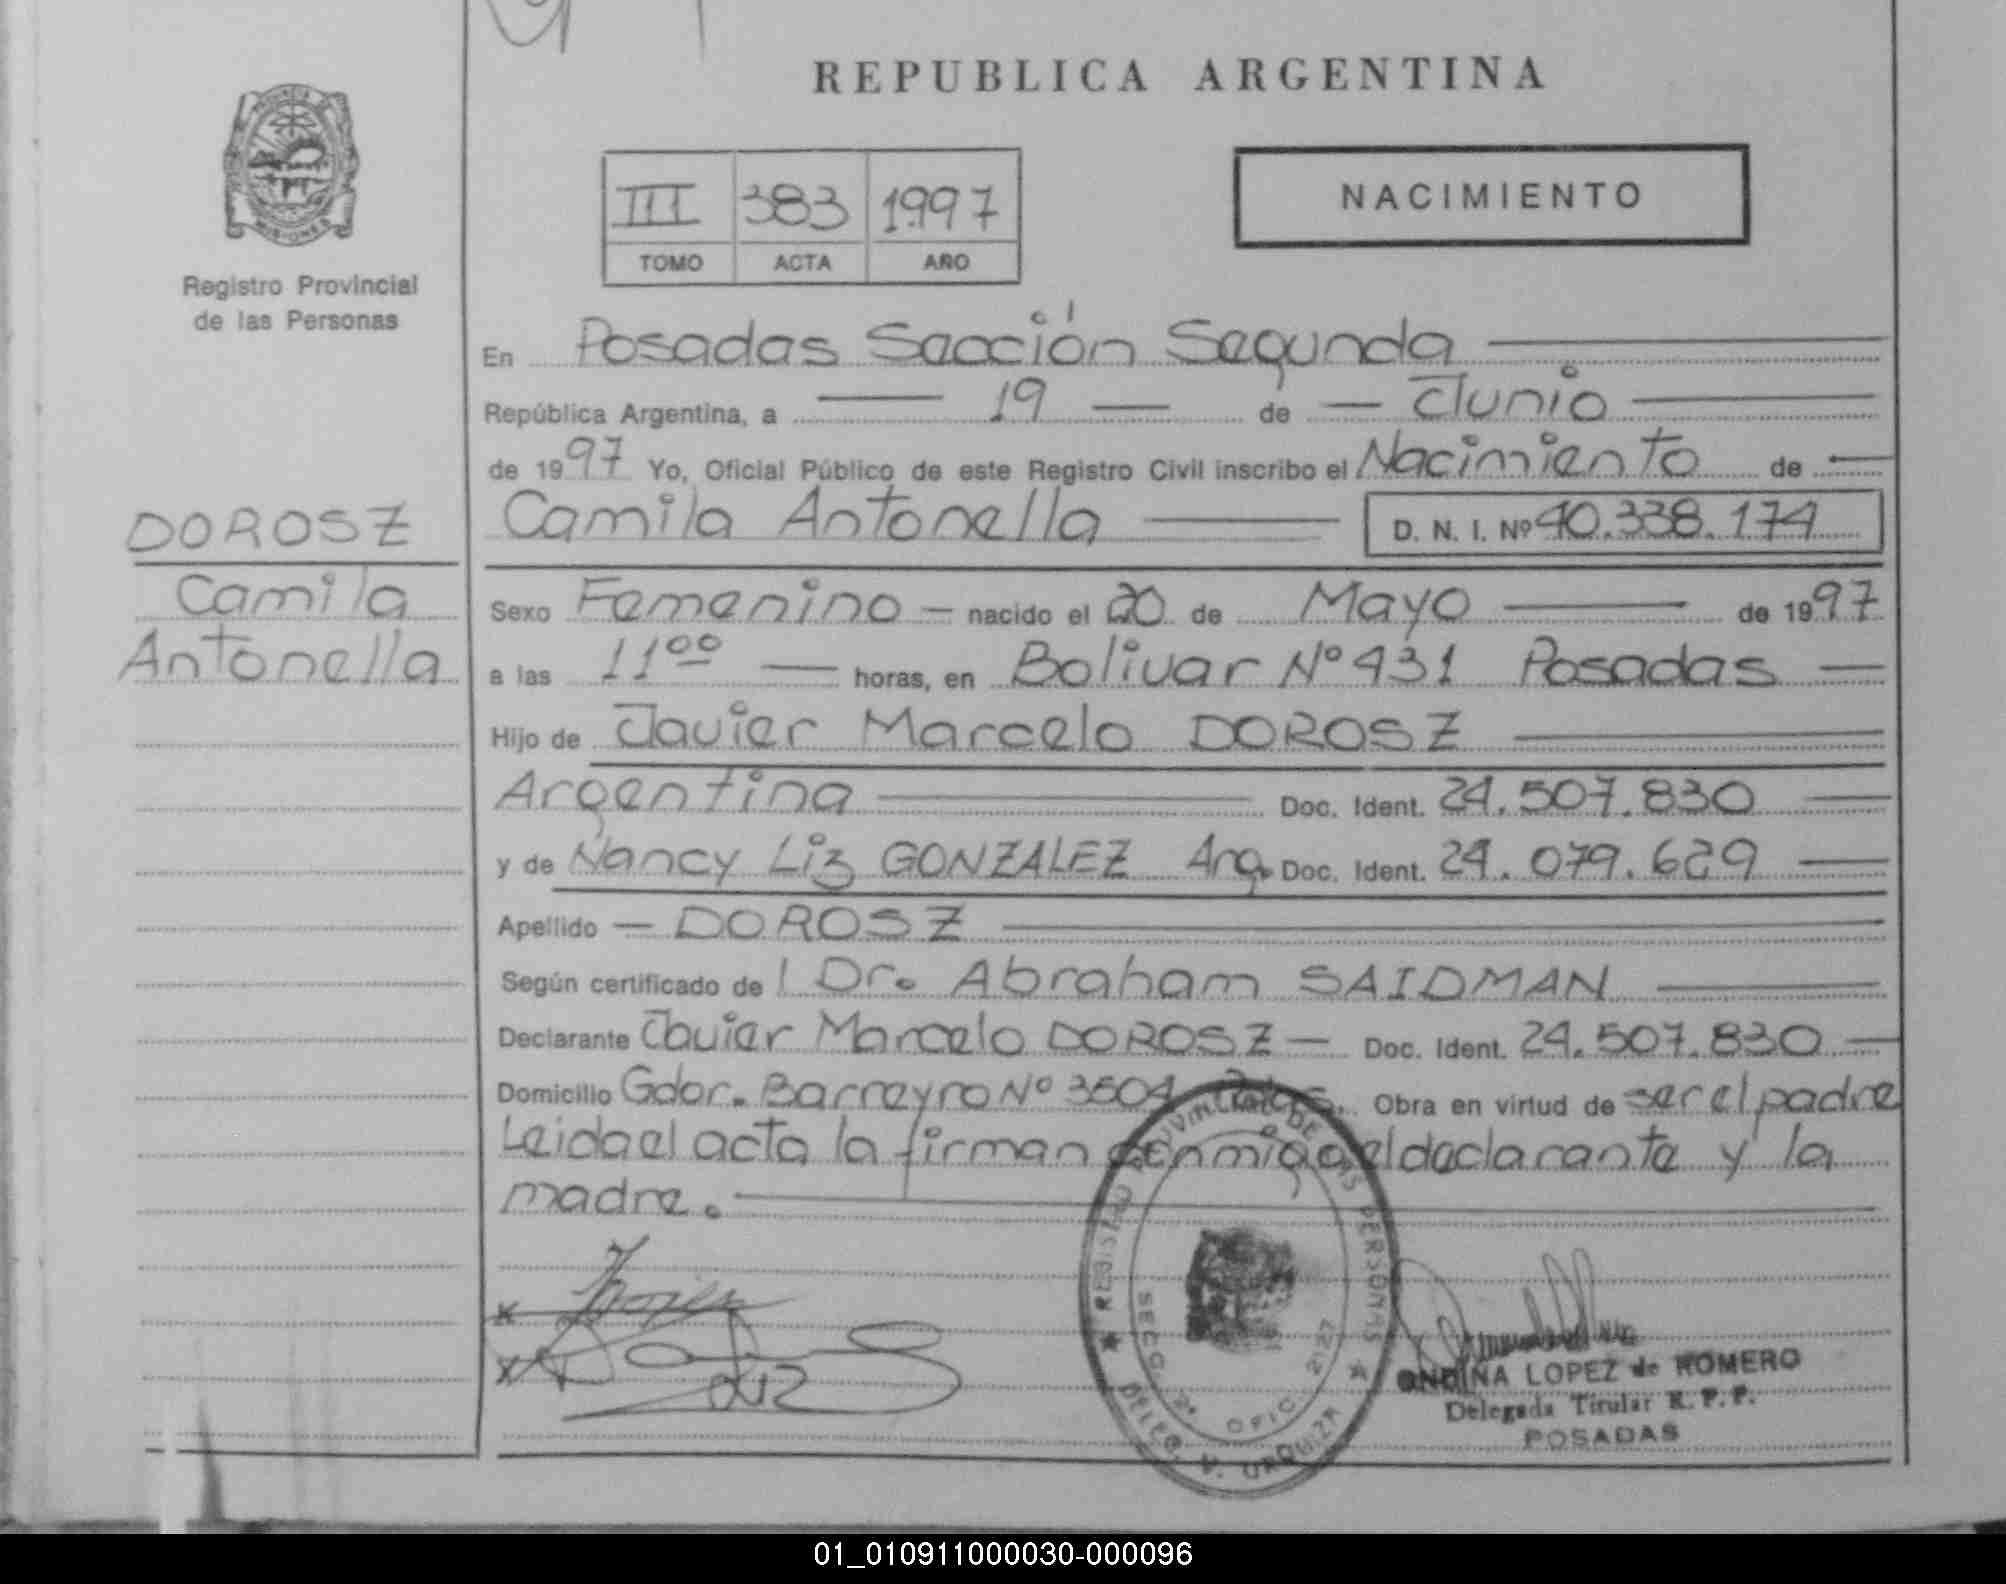 REPUBLICA ARGENTINA
PROVINCIA DE MISIONES
III 383 1997
TOMO ACTA AÑO
NACIMIENTO
Registro Provincial
de las Personas
En Posadas Sección Segunda
República Argentina, a 19 de Junio
de 1997 Yo, Oficial Público de este Registro Civil inscribo el Nacimiento de
Camila Antonella D. N. I. Nº 40.338.174
DOROSZ
Camila
Antonella
Sexo Femenino nacido el 20 de Mayo de 1997
a las 11⁰⁰ horas, en Bolivar Nº 431 Posadas
Hijo de Javier Marcelo DOROSZ
Argentina Doc. Ident. 24.507.830
y de Nancy Liz GONZALEZ Arg. Doc. Ident. 24.079.629
Apellido DOROSZ
Según certificado de Dr. Abraham SAIDMAN
Declarante Javier Marcelo DOROSZ Doc. Ident. 24.507.830
Domicilio Gdor. Barreyro Nº 3504 Pdas. Obra en virtud de ser el padre
Leida el acta la firman conmigo el declarante y la
madre.
REGISTRO PROVINCIAL DE LAS PERSONAS
SECC. 2ª OFIC. 2127
DELEG. V. URQUIZA
ONDINA LOPEZ de ROMERO
Delegada Titular R. P. P.
POSADAS
01_010911000030-000096